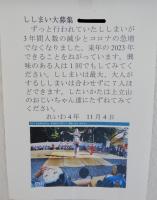 ししまい大募集
ずっと行われていたししまいが
3年間人数の減少とコロナの急増
でなくなりました。来年の2023年
できることをねがっています。興
味のある人は1回でもしてみてく
ださい。ししまいは最大、大人が
するししまいは合わせずに7人ほ
どできます。したいかたは上立山
のおじいちゃん達にたずねてみてく
ださい。
れいわ4年 11月4日